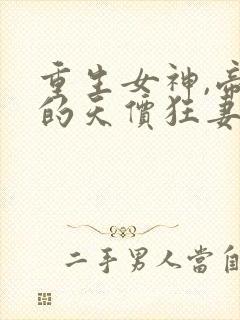 重生女神,帝
的天價狂妻
二手男人當自